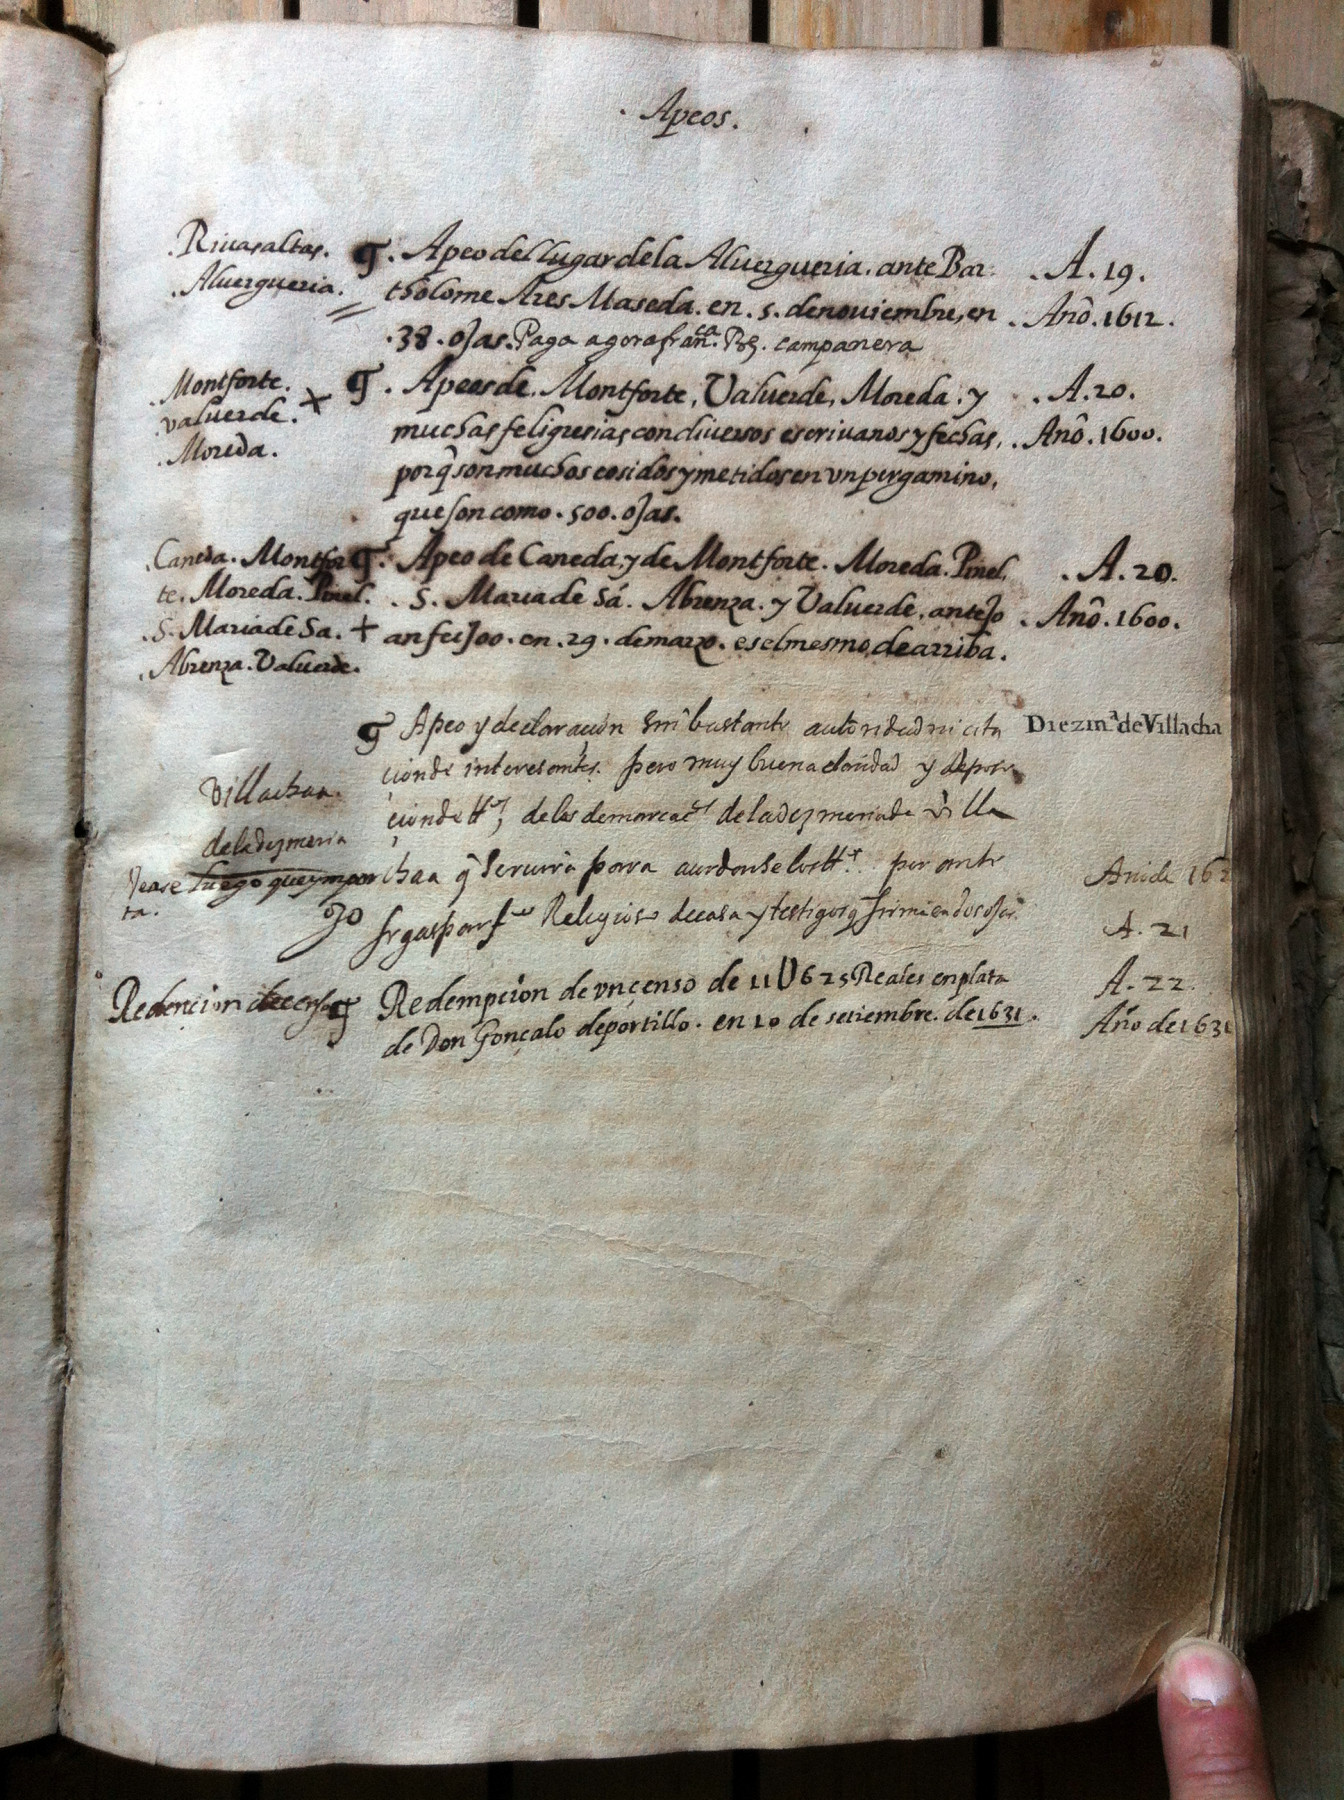 . Apeos.
.Riuasaltas.
.Aluergueria.
ꞔ. Apeo del lugar de la Aluergueria. ante Bar
tholome Ares Maseda. en. 5. de nouiembre, en
.38. ojas. Paga agora fran.ca Rs. campanera
.A.19.
.Anô.1612.
.Montforte.
.valuerde. +
.Moreda.
ꞔ. Apeos de. Montforte, Valuerde, Moreda. y
muchas feligresias con diuersos escriuanos y fechas,
porq̂ son muchos cosidos y metidos en vn pergamino,
que son como. 500. ojas.
.A.20.
.Anô.1600.
.Caneda. Montfor
te. Moreda. Pinel.
.S. Maria de Sa. +
.Abrenza. Valuerde.
ꞔ. Apeo de Caneda, y de Montforte. Moreda. Pinel,
. S. Maria de Sá. Abrenza. y Valuerde. ante Jo
an feijoo. en. 29. de marzo. es el mesmo de arriba.
.A.20.
.Anô.1600.
Villachaa.
de la dezmeria
Jease luego que ympor
ta.
ꞔ Apeo y declaracion sin bastante autoridad ni cita
cion de interesantes. Pero muy buena claridad y deposi
cion de tt.os, de las demarcac.s de la dezmeria de Villa
chaa q̂ seruira para quando se los tt.s por ante
fr gaspar Religioso de casa y testigos q firmien dos ojas.
Diezm.ª de Villacha
A. 21
Redencion de censo
ꞔ Redempcion de vn çenso de 11U625 Reales en plata
de Don Gonçalo de portillo. en 10 de setiembre. de 1631.
A. 22.
Año de 1631